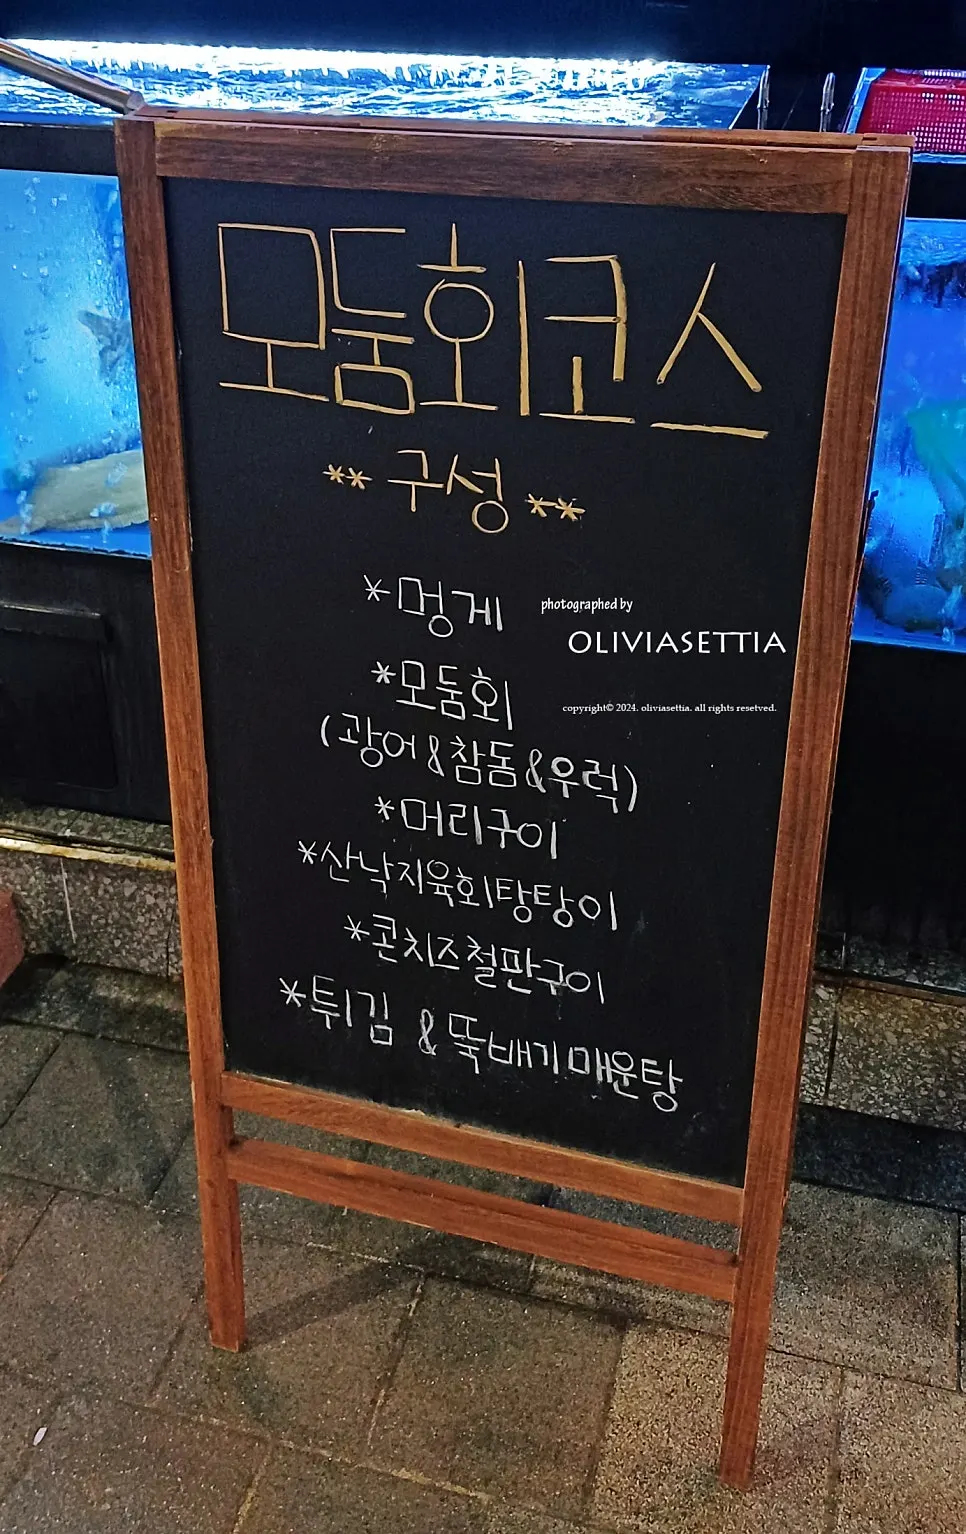 모둠회코스
** 구성 **
*멍게
photographed by
OLIVIASETTIA
*모둠회
copyright© 2024. oliviasettia. all rights resetved.
(광어&참돔&우럭)
*머리구이
*산낙지육회탕탕이
*콘치즈철판구이
*튀김 & 뚝배기매운탕